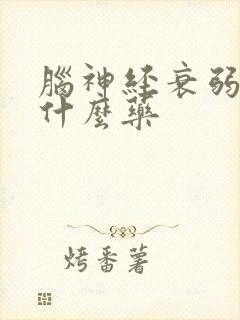 腦神经衰弱
什麼藥
烤番薯